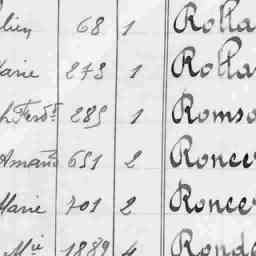 lien 68 1 Rolla
Marie 273 1 Rolla
h Ferd.t 285 1 Romso
Amand 651 2 Roncer
Marie 701 2 Roncer
Mie 1889 4 Ronda